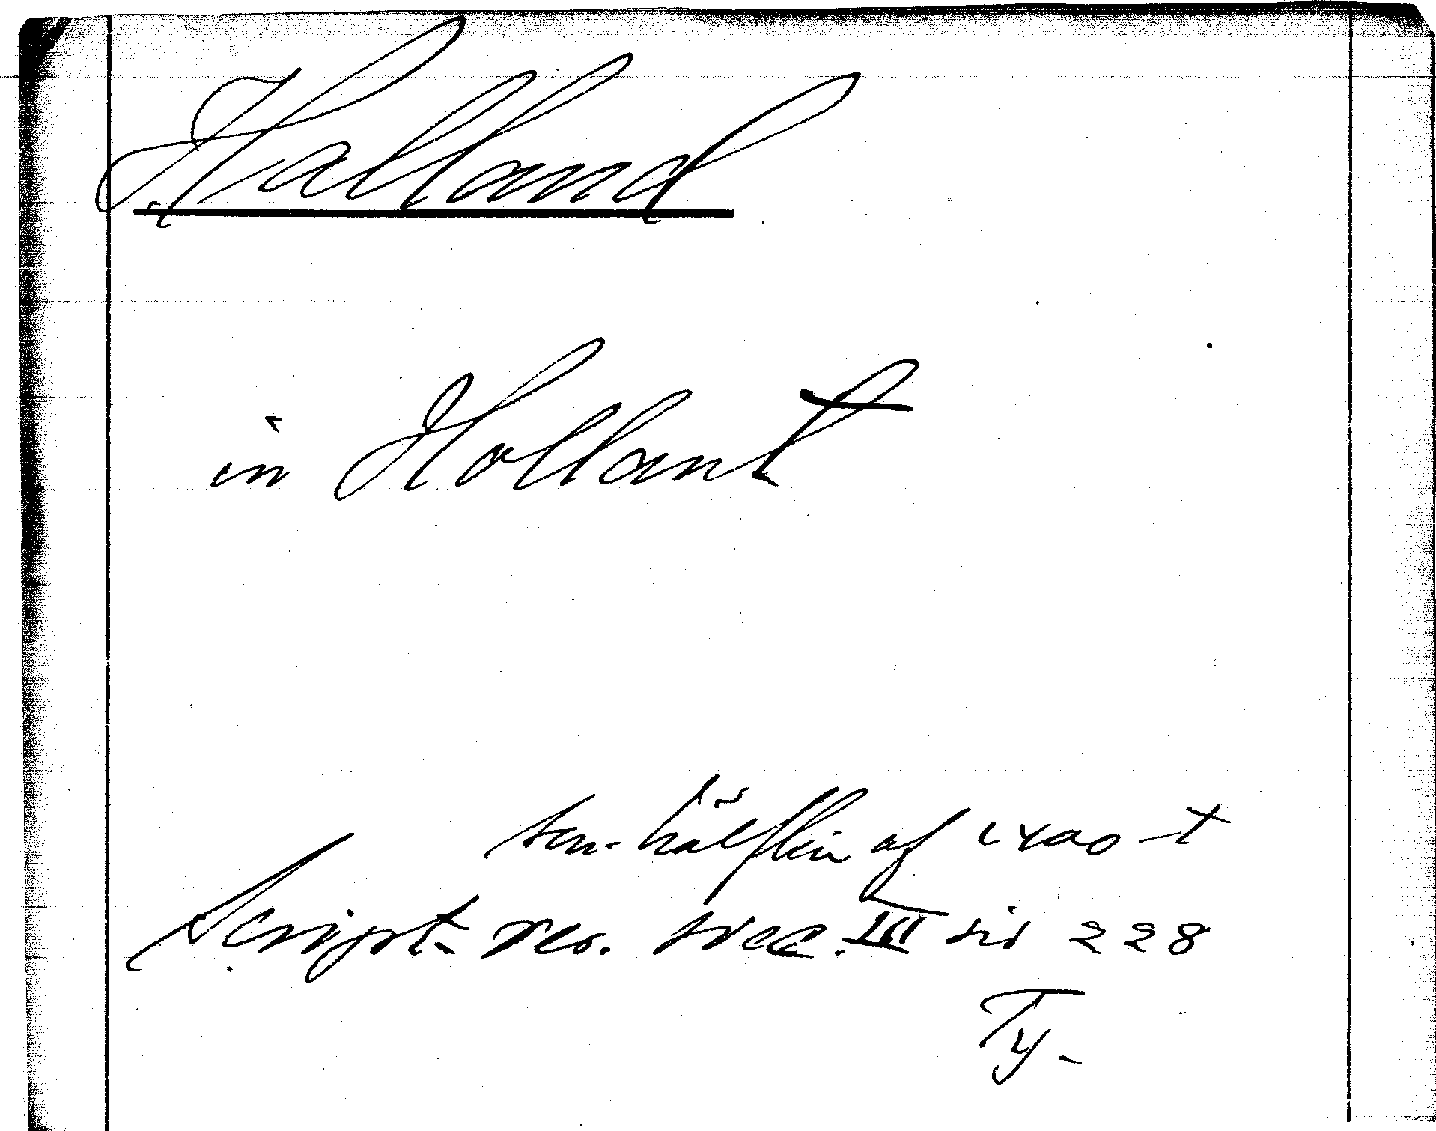 Halland
in Hollant
sen. hälften af 1400-t
Script. rer. svec. III sid 228
Ty-